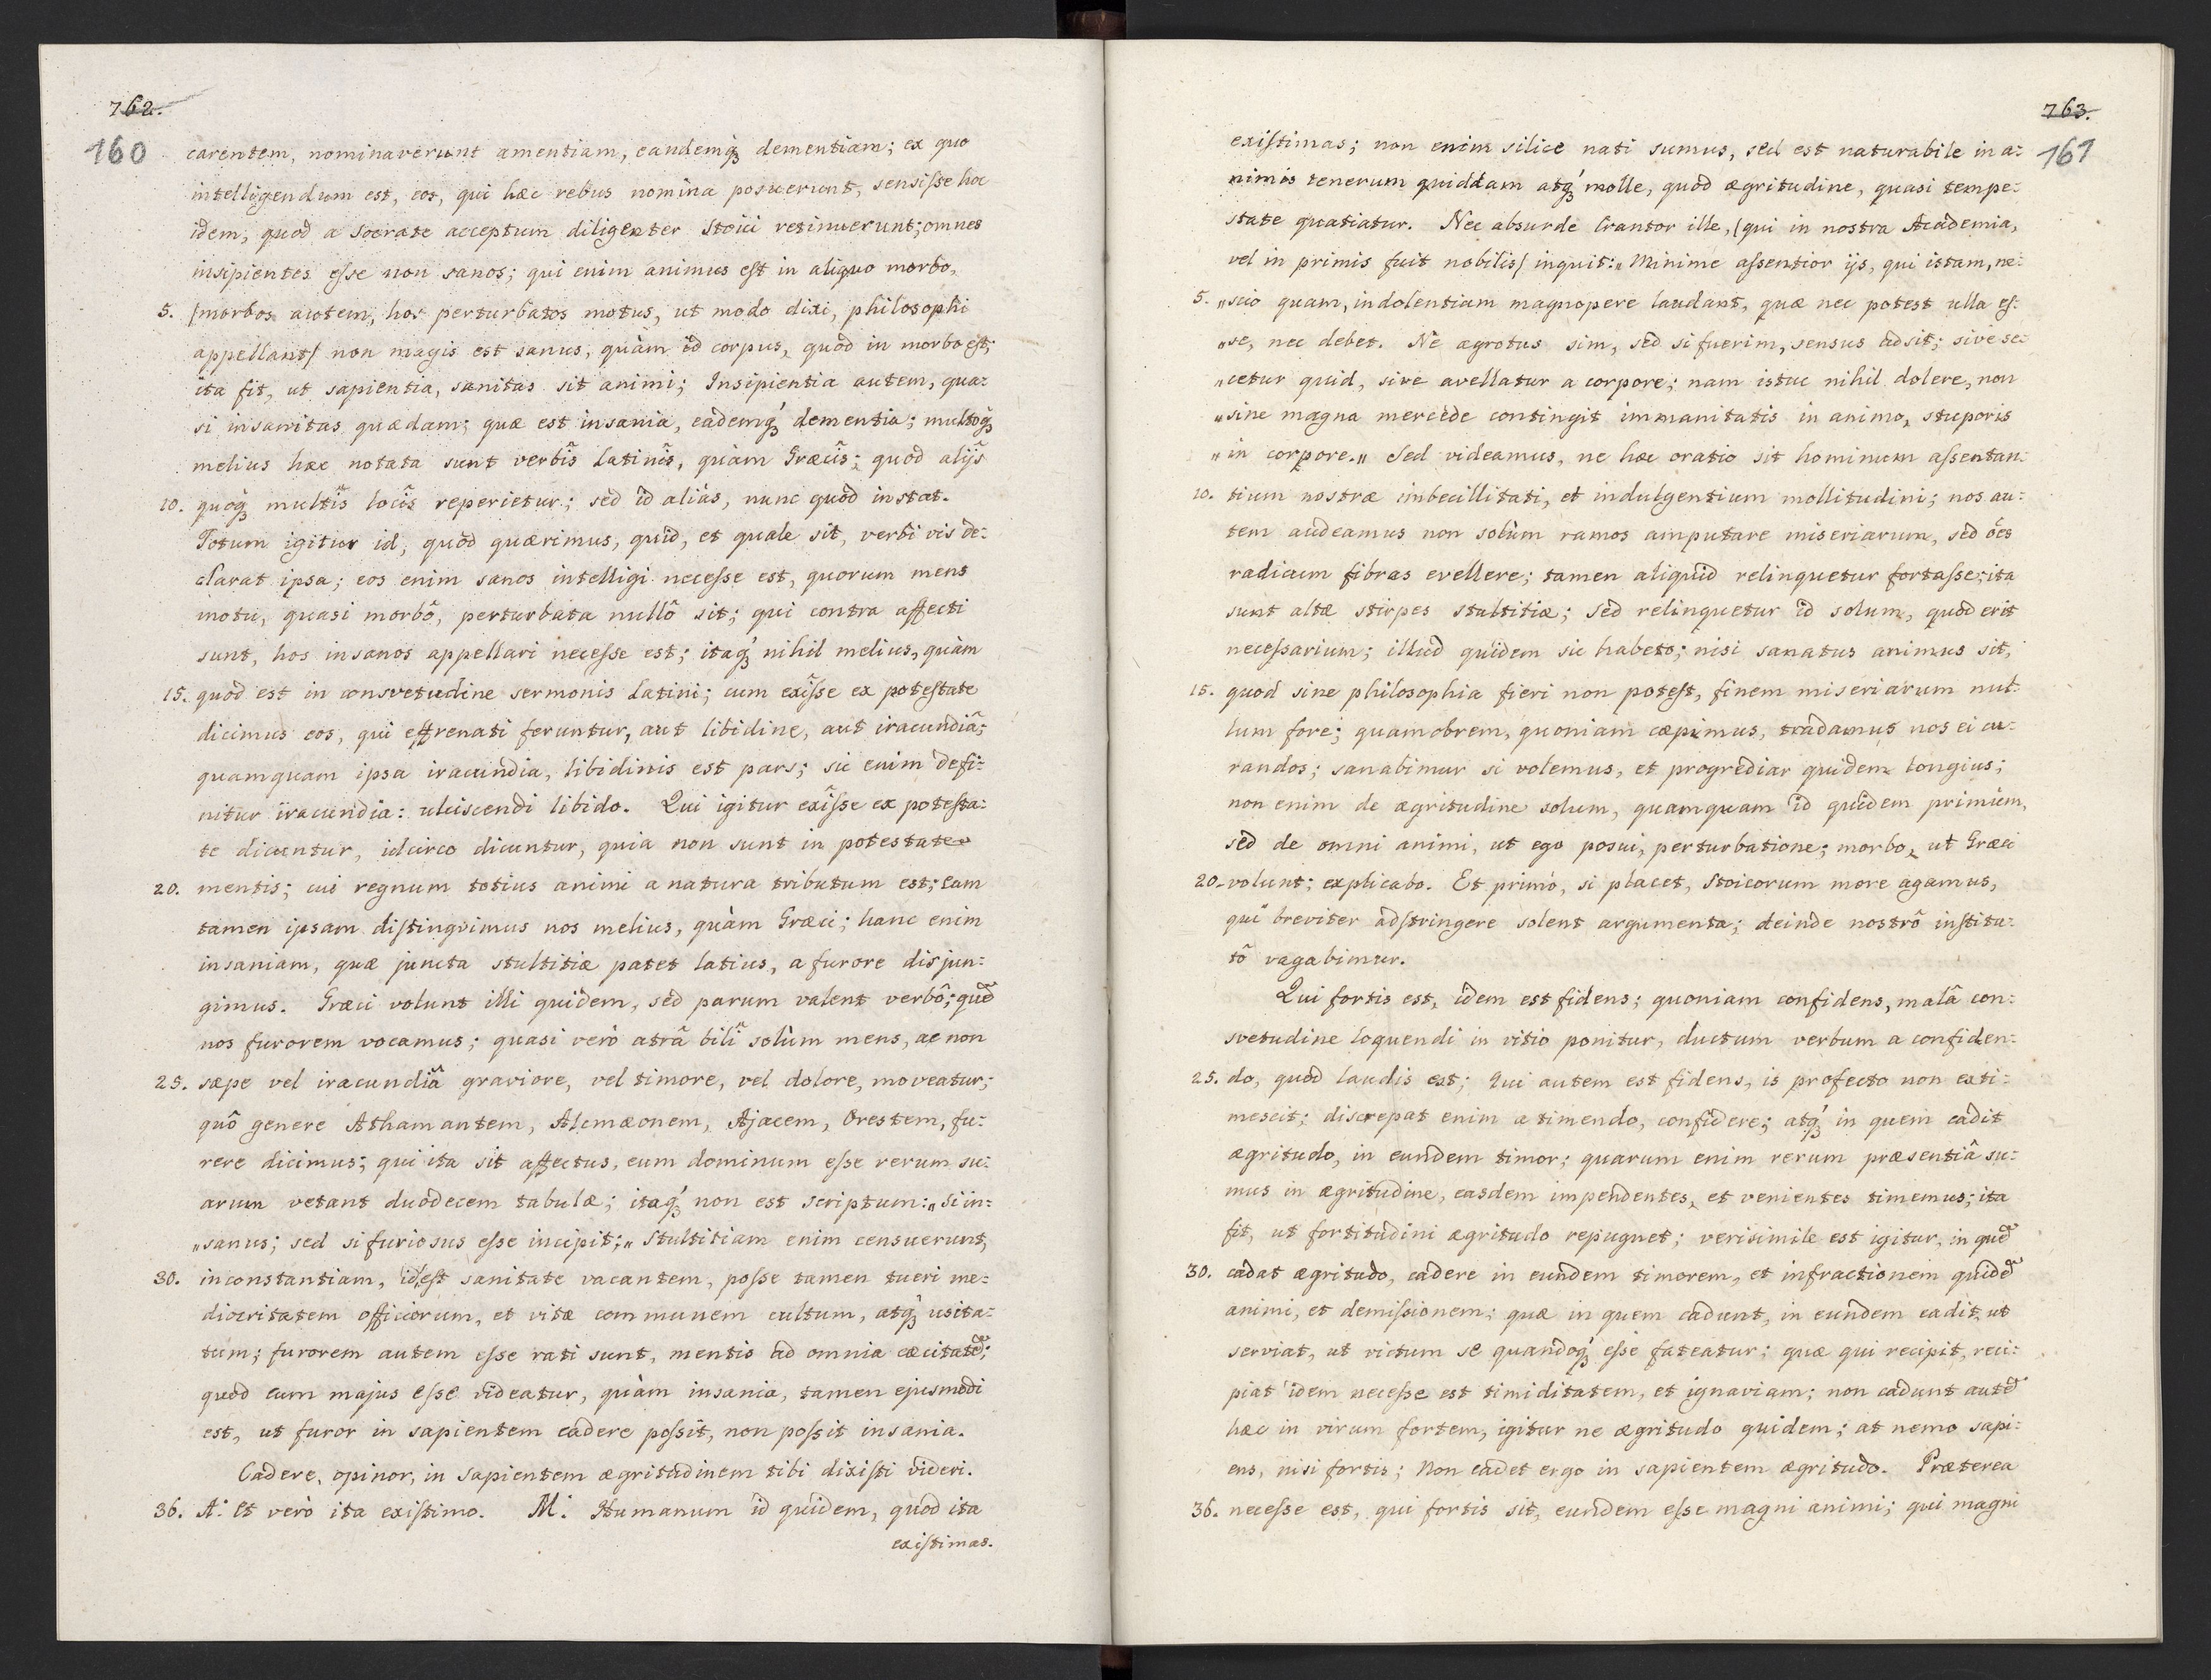 762.
160
carentem, nominaverunt amentiam, eandemq́ꝫ dementiam; ex quo
intelligendum est, eos, qui hæc rebus nomina posuerunt, sensiſse hoc
idem, quod a Socrate acceptum diligenter Stoici retinuerunt; omnes
insipientes eſse non sanos; qui enim animus eſt in aliquo morbo,
5. /morbos autem, hos perturbatos motus, ut modo dixi, philosophi
appellant/ non magis est sanus, quàm id corpus, quod in morbo eſt;
ita fit, ut sapientia, sanitas sit animi; Insipientia autem, qua:
si insanitas quædam; quæ est insania, eademq́ꝫ dementia; multoq́ꝫ
melius hæc notata sunt verbîs Latinîs, quàm Græcîs; quod alijs
10. quoq́ꝫ multîs locîs reperietur; sed id aliàs, nunc quod instat.
Totum igitur id, quod quærimus, quid, et quale sit, verbi vis de:
clarat ipsa; eos enim sanos intelligi neceſse est, quorum mens
motu, quasi morbô, perturbata nullô sit; qui contra affecti
sunt, hos insanos appellari neceſse est; itaq́ꝫ nihil melius, quàm
15. quod est in consvetudine sermonis Latini; cum exîſse ex poteſtate
dicimus eos, qui effrenati feruntur, aut libidine, aut iracundiâ;
quamquam ipsa iracundia, libidinis est pars; sic enim defi:
nitur iracundia: ulciscendi libido. Qui igitur exîſse ex poteſta:
te dicuntur, idcirco dicuntur, quia non sunt in potestate
20. mentis; cui regnum totius animi a natura tributum est; Eam
tamen ipsam diſtingvimus nos melius, quàm Græci; hanc enim
insaniam, quæ juncta stultitiæ patet latius, a furore disjun:
gimus. Græci volunt illi quidem, sed parum valent verbô; quē
nos furorem vocamus; quasi verò atrâ bilî solùm mens, ac non
25. sæpe vel iracundiâ graviore, vel timore, vel dolore, moveatur;
quô genere Athamantem, Alcmæonem, Ajacem, Orestem, fu:
rere dicimus; qui ita sit affectus, eum dominum eſse rerum su:
arum vetant duodecem tabulæ; itaq́ꝫ non est scriptum: „si in:
„sanus; sed si furiosus eſse incipit;„ Stultitiam enim censuerunt,
30. inconstantiam, id,eſt sanitate vacantem, poſse tamen tueri me:
diocritatem officiorum, et vitæ communem cultum, atq́ꝫ usita:
tum; furorem autem eſse rati sunt, mentis ad omnia cæcitatē;
quod cum majus eſse videatur, quàm insania, tamen ejusmodi
est, ut furor in sapientem cadere poſsit, non poſsit insania.
Cadere, opinor, in sapientem ægritudinem tibi dixiſti videri.
36. A: Et verò ita exiſtimo. M: Humanum id quidem, quod ita
exiſtimas.
763.
161
exiſtimas; non enim silice nati sumus, sed est naturabile in a:
nimis tenerum quiddam atq́ꝫ molle, quod ægritudine, quasi tempe:
state quatiatur. Nec absurde Crantor ille, /qui in nostra Academia,
vel in primis fuit nobilis/ inquit: „Minime aſsentior ijs, qui istam, ne:
5. „scio quam, indolentiam magnopere laudant, quæ nec potest ulla eſ:
„se, nec debet. Ne ægrotus sim, sed si fuerim, sensus adsit; sive se:
„cetur quid, sive avellatur a corpore; nam istuc nihil dolere, non
„sine magna mercede contingit immanitatis in animo, stuporis
„in corpore.„ Sed videamus, ne hæc oratio sit hominum aſsentan:
10. tium nostræ imbecillitati, et indulgentium mollitudini; nos au:
tem audeamus non solùm ramos amputare miseriarum, sed ōes
radicum fibras evellere; tamen aliquid relinquetur fortaſse; ita
sunt altæ stirpes stultitiæ; sed relinquetur id solum, quod erit
neceſsarium; illud quidem sic habeto; nisi sanatus animus sit,
15. quod sine philosophia fieri non poteſt, finem miseriarum nul:
lum fore; quamobrem, quoniam cæpimus, tradamus nos ei cu:
randos; sanabimur si volemus, et progrediar quidem longius;
non enim de ægritudine solum, quamquam id quidem primùm,
sed de omni animi, ut ego posui, perturbatione; morbo, ut Græci
20. volunt; explicabo. Et primò, si placet, Stoicorum more agamus,
qui breviter adſtringere solent argumenta; deinde nostrô inſtitu:
tô vagabimur.
Qui fortis est, idem est fidens; quoniam confidens, malâ con:
svetudine loquendi in vitio ponitur, ductum verbum a confiden:
25. do, quod laudis est; Qui autem est fidens, is profecto non exti:
mescit; discrepat enim a timendo, confidere; atq́ꝫ in quem cadit
ægritudo, in eundem timor; quarum enim rerum præsentiâ su:
mus in ægritudine, easdem impendentes, et venientes timemus; ita
fit, ut fortitudini ægritudo repugnet; verisimile est igitur, in quē
30. cadat ægritudo, cadere in eundem timorem, et infractionem quidē
animi, et demiſsionem; quæ in quem cadunt, in eundem cadit, ut
serviat, ut victum se quandoq́ꝫ eſse fateatur; quæ qui recipit, reci:
piat idem neceſse est timiditatem, et ignaviam; non cadunt autē
hæc in virum fortem, igitur ne ægritudo quidem; at nemo sapi:
ens, nisi fortis; Non cadet ergo in sapientem ægritudo. Præterea
36. neceſse est, qui fortis sit, eundem eſse magni animi; qui magni